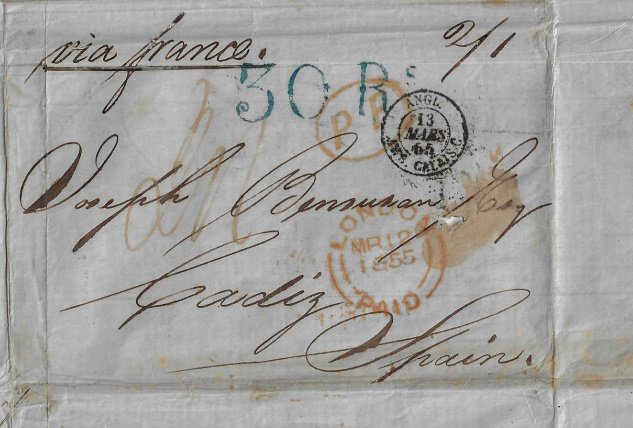 via france.
2/1
30 Rs
P.P.
ANGL.
13
MARS
55
AMB. CALAIS C
Joseph Bensusan Esq
LONDON
MR 12
1855
PAID
Cadiz
Spain.